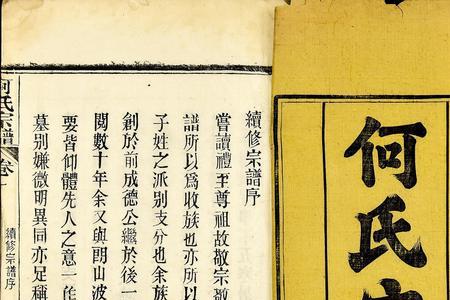 何氏宗
續修宗譜序
嘗讀禮至尊祖故敬宗敬
譜所以爲收族也亦所以
子姓之派別支分也余族
創於前成德公繼於後一
閱數十年余又與朗山波
要皆仰體先人之意一作
墓别嫌微明異同亦足稱
何氏宗譜
卷
續修宗譜序